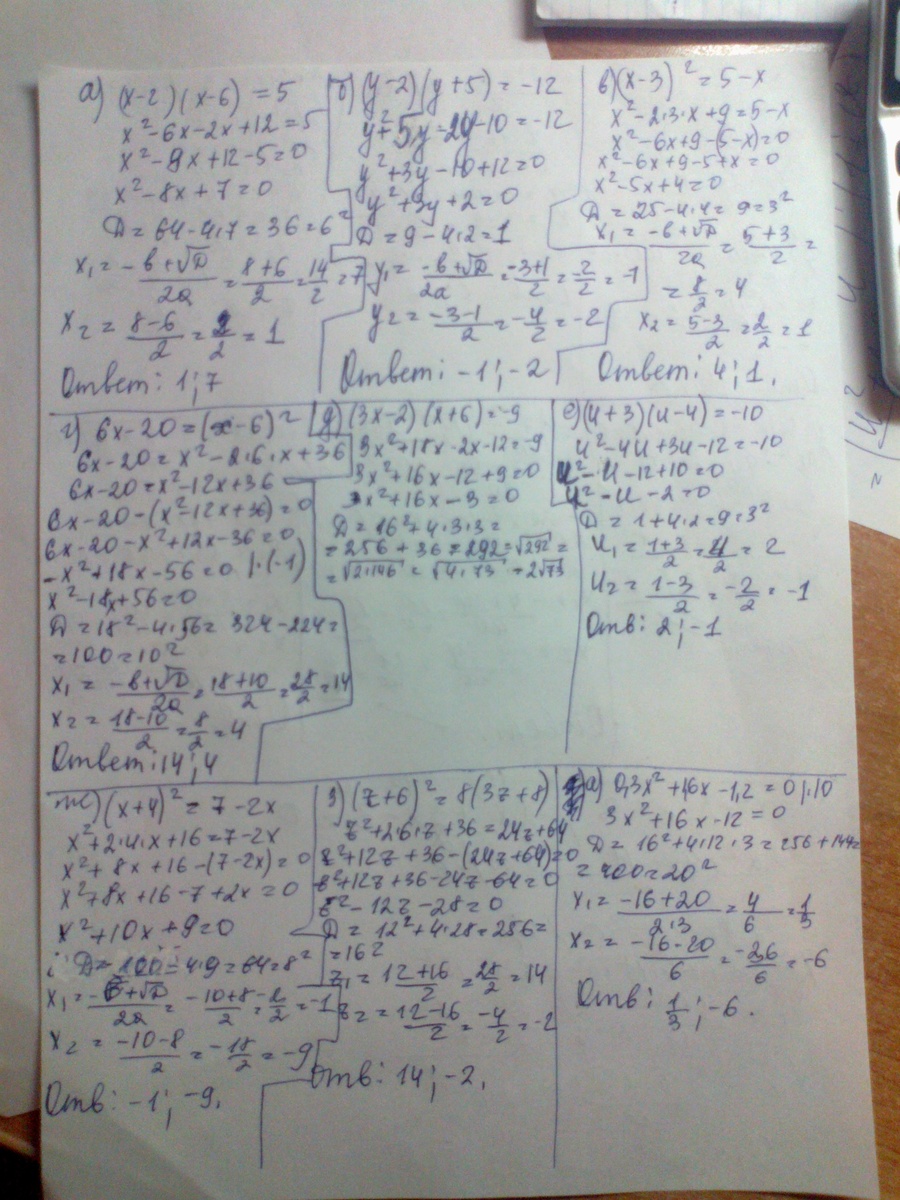 а) (x-2)(x-6) = 5
x²-6x-2x+12=5
x²-8x+12-5=0
x²-8x+7=0
D=64-4·7=36=6²
x₁=-b+√D/2a=8+6/2=14/2=7
x₂=8-6/2=2/2=1
Ответ: 1;7
б) (y-2)(y+5)=-12
y²+5y-2y-10=-12
y²+3y-10+12=0
y²+3y+2=0
D=9-4·2=1
y₁=-b+√D/2a=-3+1/2=-2/2=-1
y₂=-3-1/2=-4/2=-2
Ответ: -1;-2
в) (x-3)²=5-x
x²-2·3·x+9=5-x
x²-6x+9-(5-x)=0
x²-6x+9-5+x=0
x²-5x+4=0
D=25-4·4=9=3²
x₁=-b+√D/2a=5+3/2=
=8/2=4
x₂=5-3/2=2/2=1
Ответ: 4;1.
г) 6x-20=(x-6)²
6x-20=x²-2·6·x+36
6x-20=x²-12x+36
6x-20-(x²-12x+36)=0
6x-20-x²+12x-36=0
-x²+18x-56=0 |·(-1)
x²-18x+56=0
D=18²-4·56=324-224=
=100=10²
x₁=-b+√D/2a=18+10/2=28/2=14
x₂=18-10/2=8/2=4
Ответ: 14;4
д) (3x-2)(x+6)=-9
3x²+18x-2x-12=-9
3x²+16x-12+9=0
3x²+16x-3=0
D=16²+4·3·3=
=256+36=292=√292=
=√2·146=√4·73=2√73
е) (u+3)(u-4)=-10
u²-4u+3u-12=-10
u²-u-12+10=0
u²-u-2=0
D=1+4·2=9=3²
u₁=1+3/2=4/2=2
u₂=1-3/2=-2/2=-1
Отв: 2;-1
ж) (x+4)²=7-2x
x²+2·4·x+16=7-2x
x²+8x+16-(7-2x)=0
x²+8x+16-7+2x=0
x²+10x+9=0
D=100-4·9=64=8²
x₁=-b+√D/2a=-10+8/2=-2/2=-1
x₂=-10-8/2=-18/2=-9
Отв: -1;-9.
з) (z+6)²=8(3z+8)
z²+2·6·z+36=24z+64
z²+12z+36-(24z+64)=0
z²+12z+36-24z-64=0
z²-12z-28=0
D=12²+4·28=256=
=16²
z₁=12+16/2=28/2=14
z₂=12-16/2=-4/2=-2
Отв: 14;-2.
а) 0,3x²+1,6x-1,2=0 |·10
3x²+16x-12=0
D=16²+4·12·3=256+144=
=400=20²
x₁=-16+20/2·3=4/6=1/3
x₂=-16-20/6=-36/6=-6
Отв: 1/3;-6.